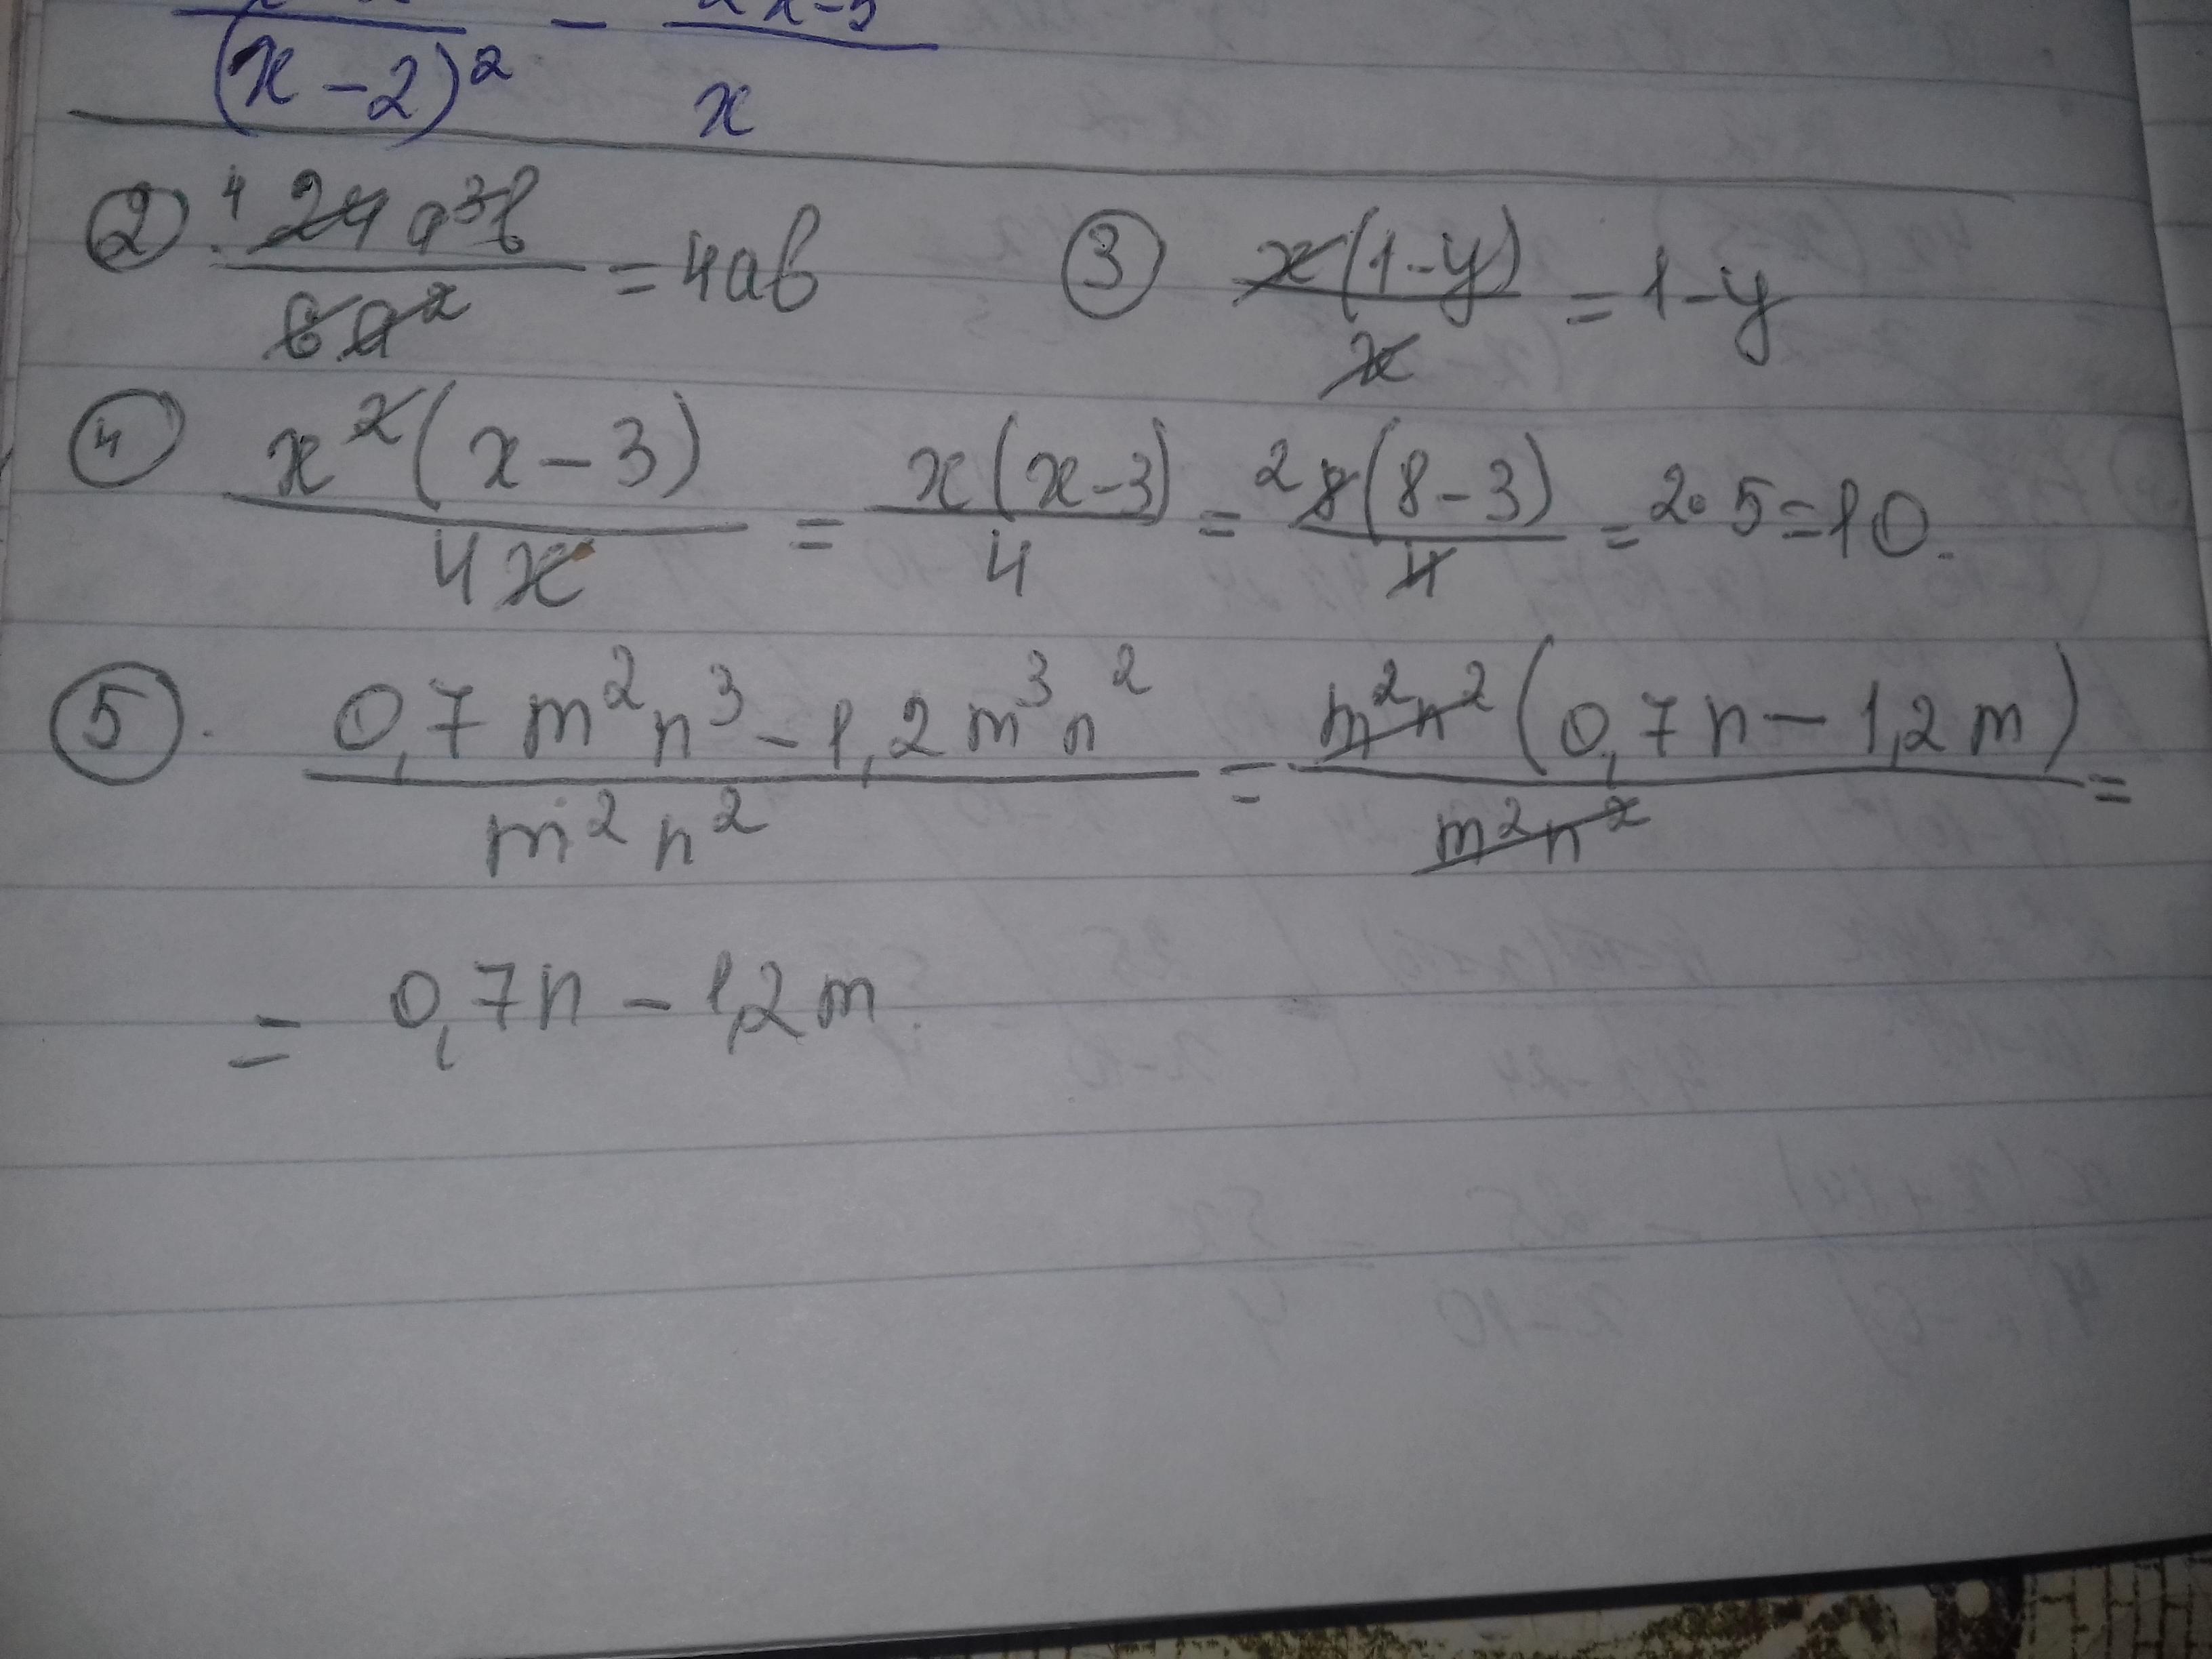 (x-2)² - x
② 4 24a³b / 6a² = 4ab ③ x(1-y) / x = 1-y
④ x²(x-3) / 4x = x(x-3) / 4 = 2 8(8-3) / 4 = 2·5=10.
⑤. 0,7m²n³-1,2m³n² / m²n² = m²n²(0,7n-1,2m) / m²n² =
= 0,7n-1,2m.